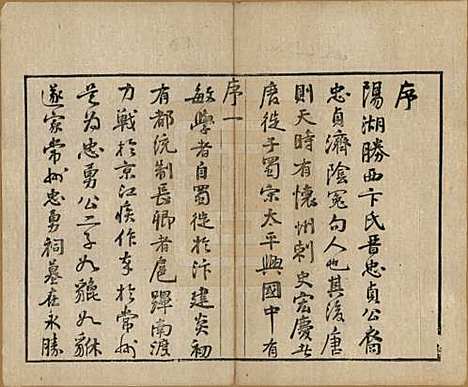 序
陽湖勝西卞氏晉忠貞公裔
忠貞濟陰冤句人也其後唐
則天時有懷州刺史宏慶者
唐徙子蜀宋太平興國中有
序一
敏學者自蜀徙於汴建炎初
有都統制長卿者扈蹕南渡
力戰於京江疾作卒於常州
是為忠勇公二子如龍如貅
遂家常州忠勇祠墓在永勝